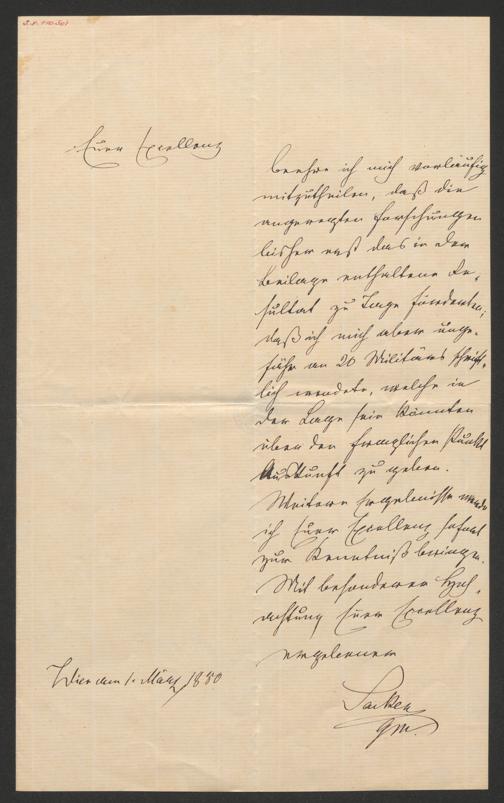 Euer Excellenz
beehre ich mich vorläufig
mitzutheilen, daß die
angeregten Forschungen
bisher erst das in der
Beilage enthaltene Re-
sultat zu Tage förderten;
daß ich mich aber unge-
fähr an 20 Militärs schrift-
lich wendete, welche in
der Lage sein könnten
über den fraglichen Punkt
Auskunft zu geben.
Weitere Ergebnisse werde
ich Euer Excellenz sofort
zur Kenntniß bringen.
Mit besonderer Hoch-
achtung Euer Excellenz
ergebener
Wien am 1. März 1880
Sacken
GM.